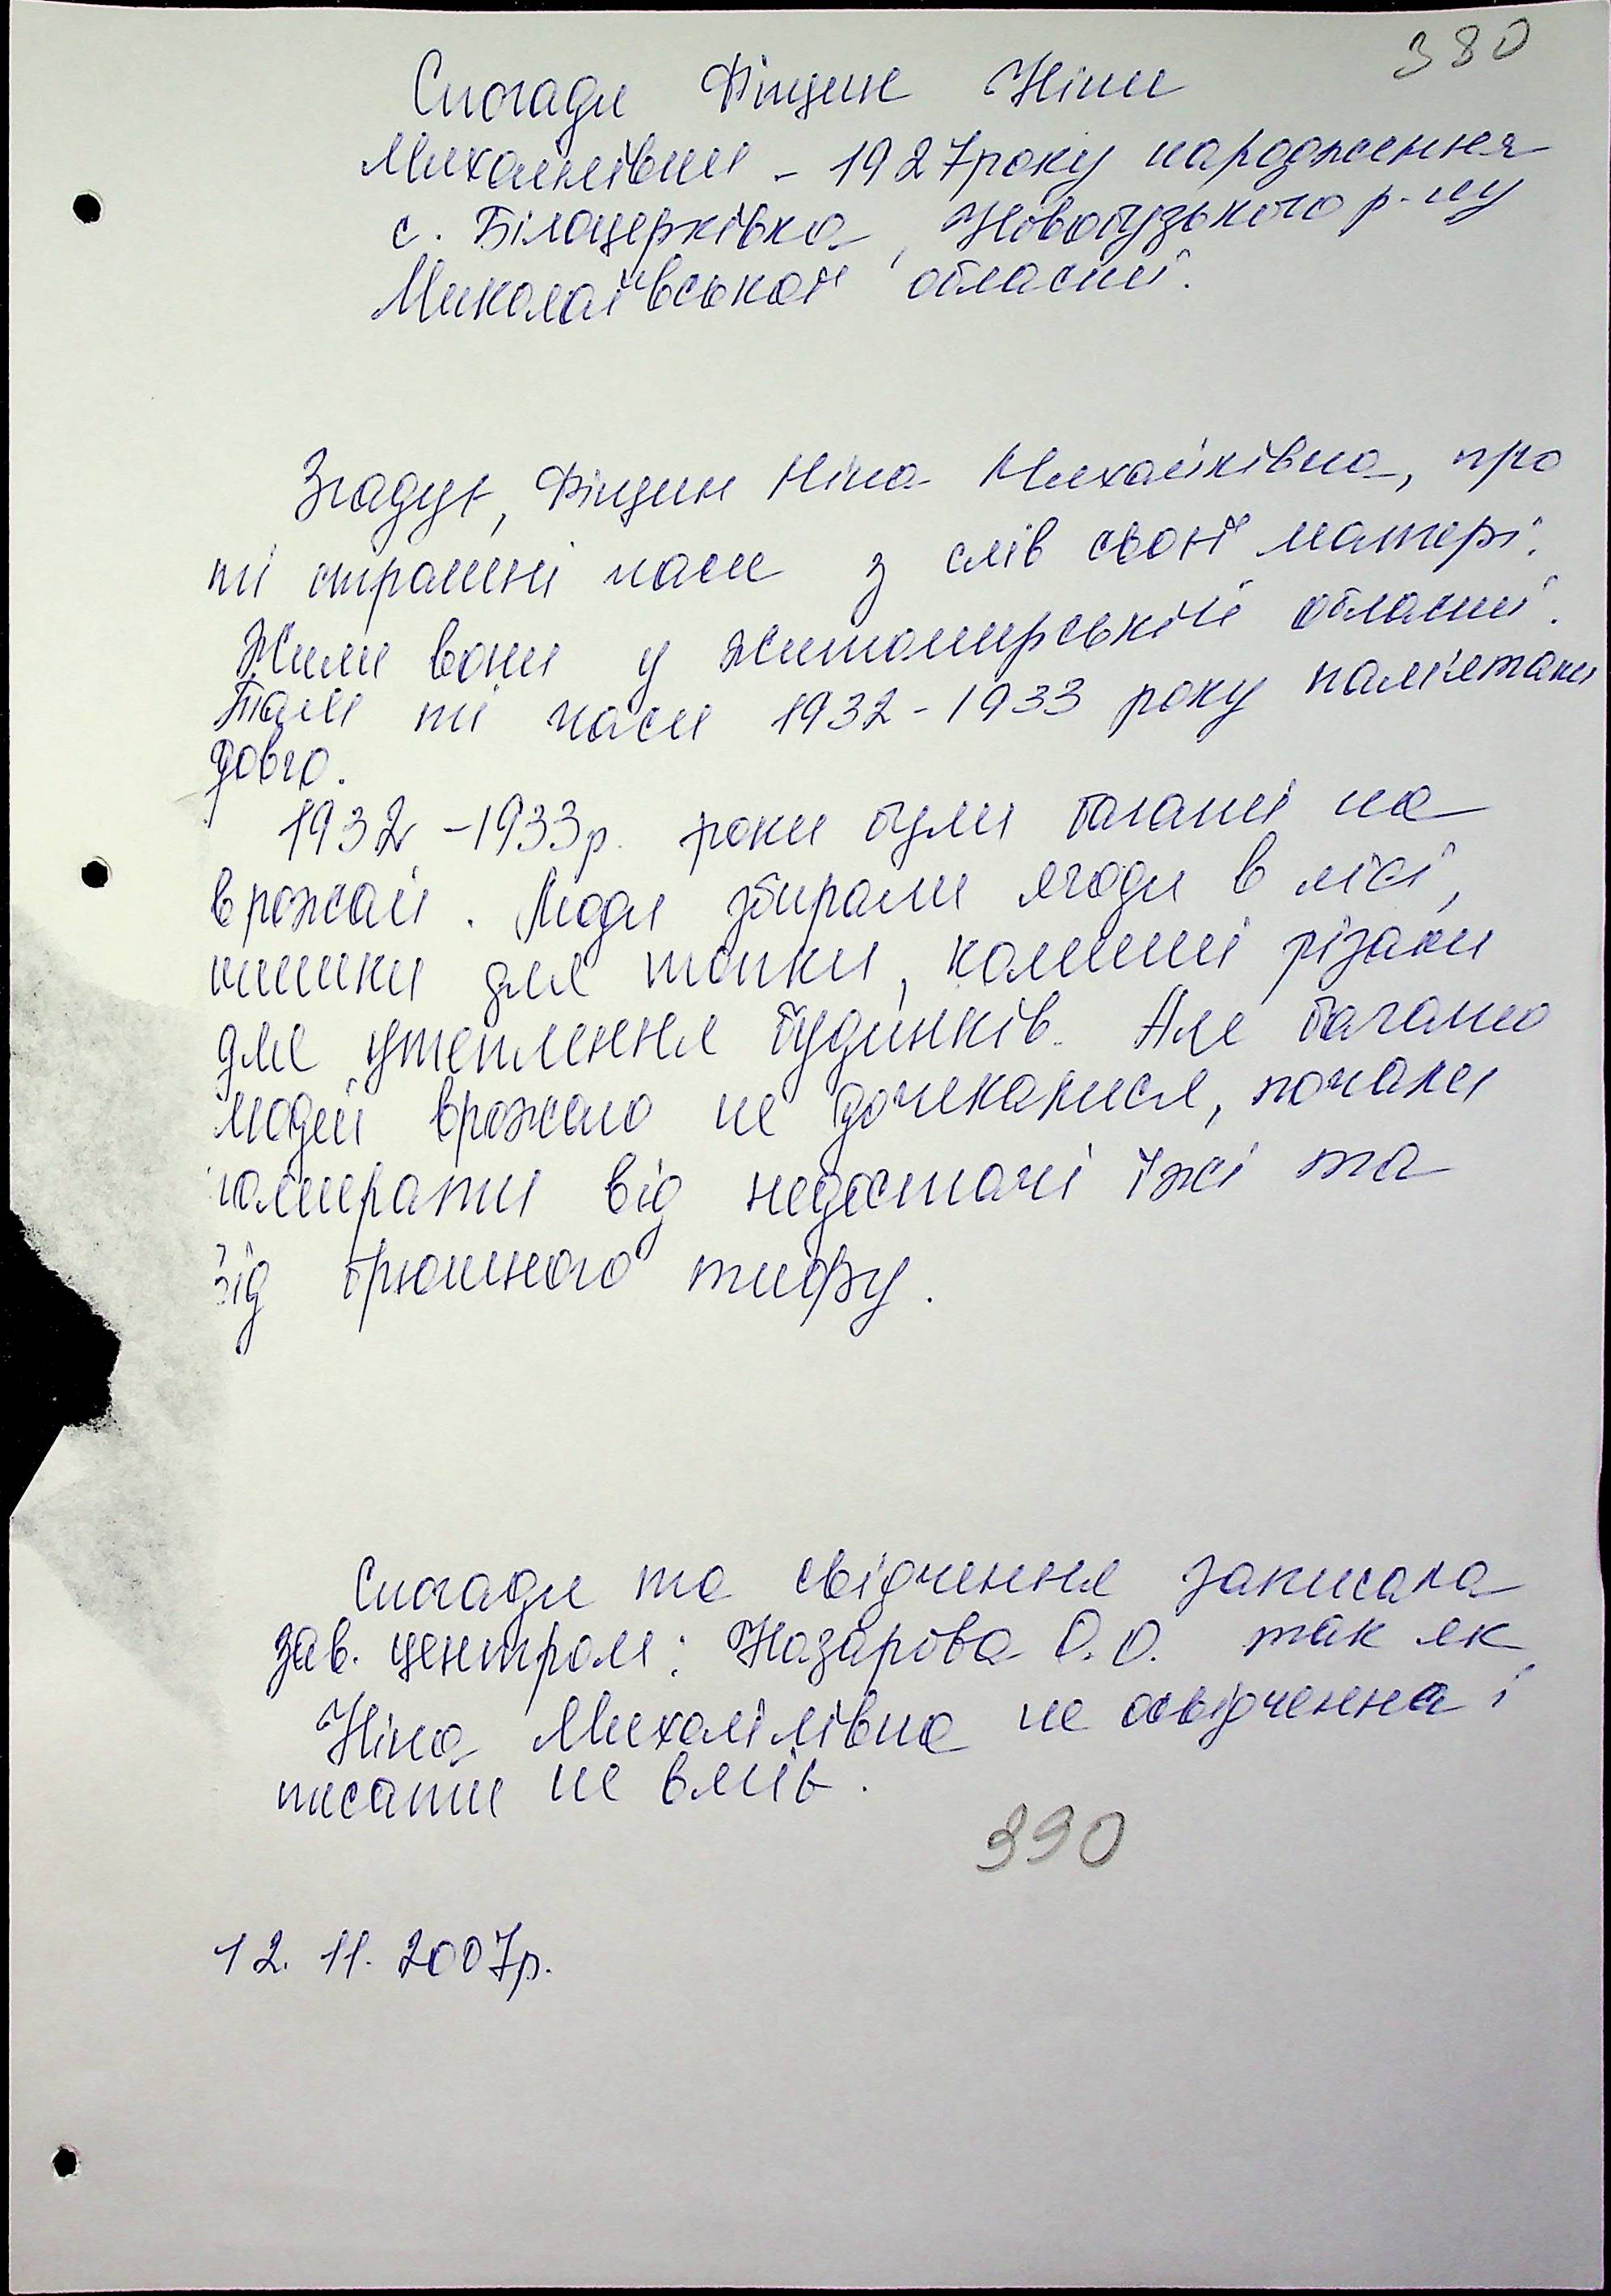 380
Спогади Фіцин Ніни
Михайлівни - 1927року народження
с. Білоцерківка, Новобузького р-ну
Миколаївської області.
Згадує, Фіцин Ніна Михайлівна, про
ті страшні часи з слів своєї матері.
Жили вони у Житомирській області.
Там ті часи 1932-1933 року пам'ятали
довго.
1932-1933р. роки були багаті на
врожай. Люди збирали ягоди в лісі,
шишки для топки, комиші різали
для утеплення будинків. Але багато
людей врожаю не дочекалися, почали
помирати від недостачі їжі та
від брюшного тифу.
Спогади та свідчення записала
зав. центром: Назарова О.О. так як
Ніна Михайлівна не освідченна і
писати не вміє.
390
12. 11. 2007р.